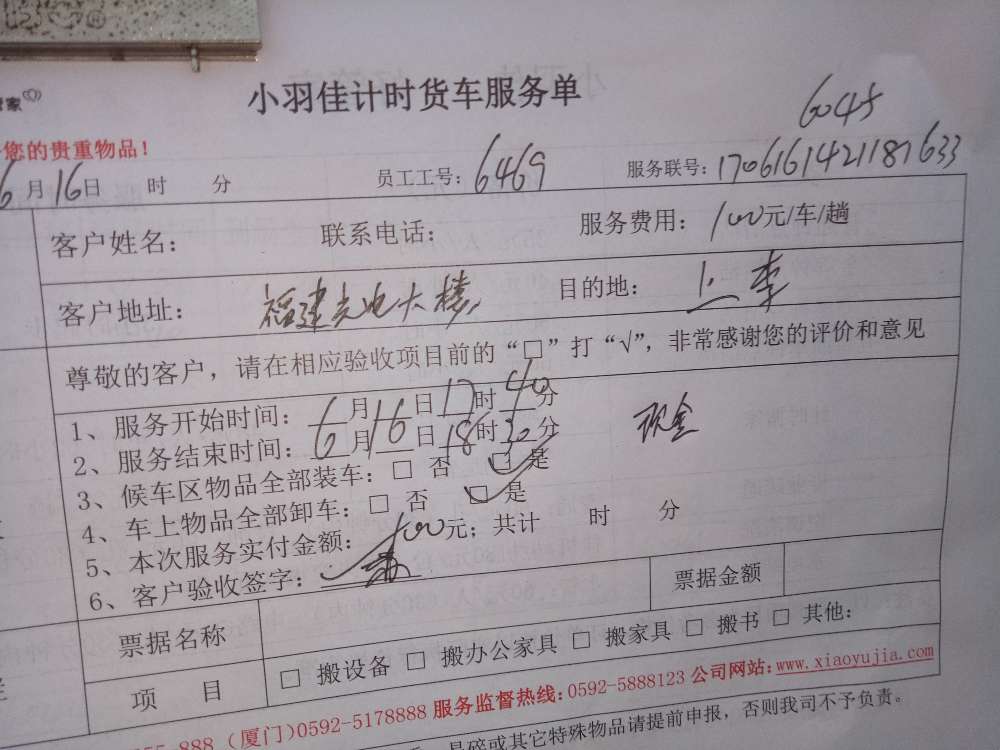 家
小羽佳计时货车服务单
6045
您的贵重物品!
6月16日 时 分 员工工号:6469 服务联号:1706161421187633
客户姓名: 联系电话: 服务费用:100元/车/趟
客户地址:福建光电大楼 目的地:
尊敬的客户,请在相应验收项目前的“□”打“√”,非常感谢您的评价和意见
1、服务开始时间:6月16日17时40分
2、服务结束时间:6月16日18时30分 现金
3、候车区物品全部装车:□ 否 □ 是
4、车上物品全部卸车:□ 否 □ 是
5、本次服务实付金额:100元;共计 时 分
6、客户验收签字:
票据名称 票据金额
项 目 □ 搬设备 □ 搬办公家具 □ 搬家具 □ 搬书 □ 其他:
888(厦门)0592-5178888 服务监督热线:0592-5888123 公司网站:www.xiaoyujia.com
易碎或其它特殊物品请提前申报,否则我司不予负责。